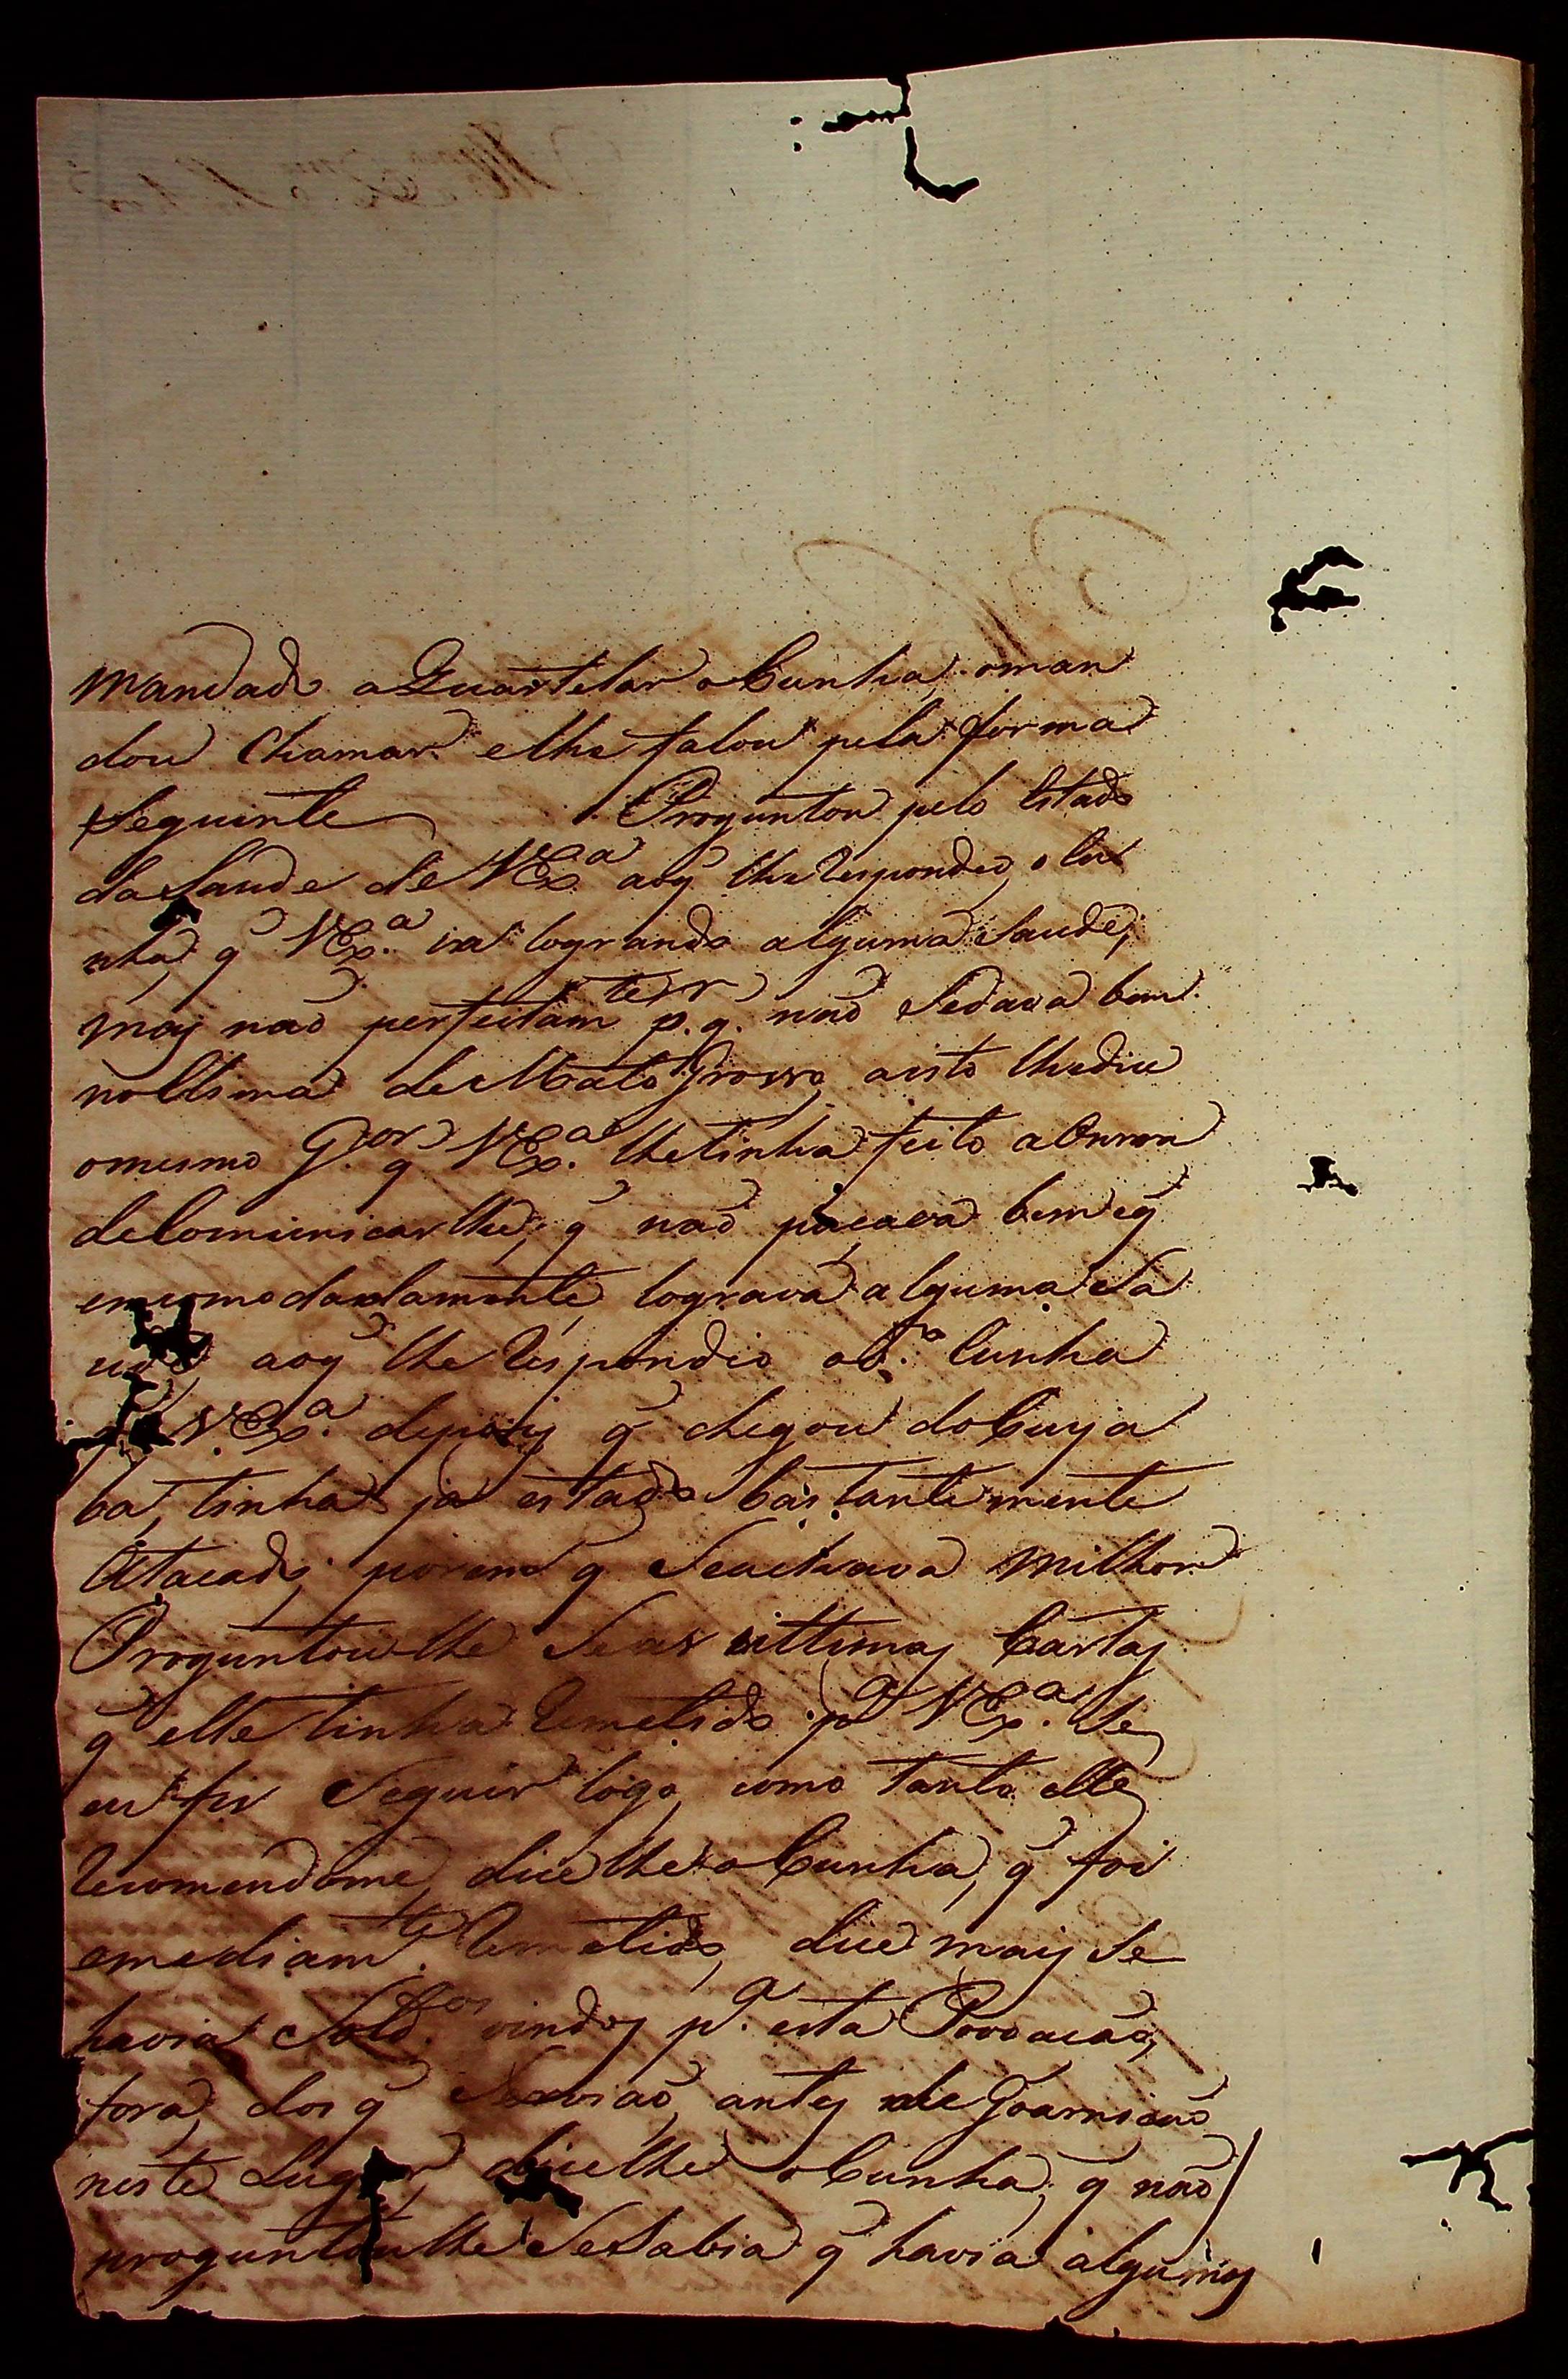 mandado aQuartelar oCunha, oman
dou Chamar elhe falou pela forma
Seguinte Proguntou pelo Estado
daSaude de VExª aoq̃ lhe Respondeo, o Cu
nha, q̃ VExª. ia logrando alguma Saude,
mas naõ perfeitam.te p.r q. naõ Sedava bem
noClima de Mato Grosso, aisto lhedice
omesmo G.or q̃ VExª. lhetinha feito aOnrra
deComunicarlhe, q̃ naõ pacava bem eq̃
encomodadamente, lograva alguma Sa
ude, aoq̃ lhe Respondeo oD.º Cunha
q̃ VExª. depois q̃ chegou doCuya
ba, tinha ja estado bastantemente
Atacado, porem q̃ Seachava milhor
Proguntoulhe Seas ultimas Cartas
q̃ elle tinha Remetido pª VExª. Se
eu fis Seguir logo, como tanto elle
Recomendome, dicelhe oCunha, q̃ foi
emediam.te Remetido, dice mais Se
havia Sold.os vindos pª. esta Povoacaõ,
fora, dos q̃ Serviaõ, antes de Goarnicaõ
neste Lugar, dicelhe oCunha, q̃ naõ/
proguntoulhe SeSabia q̃ havia alguns